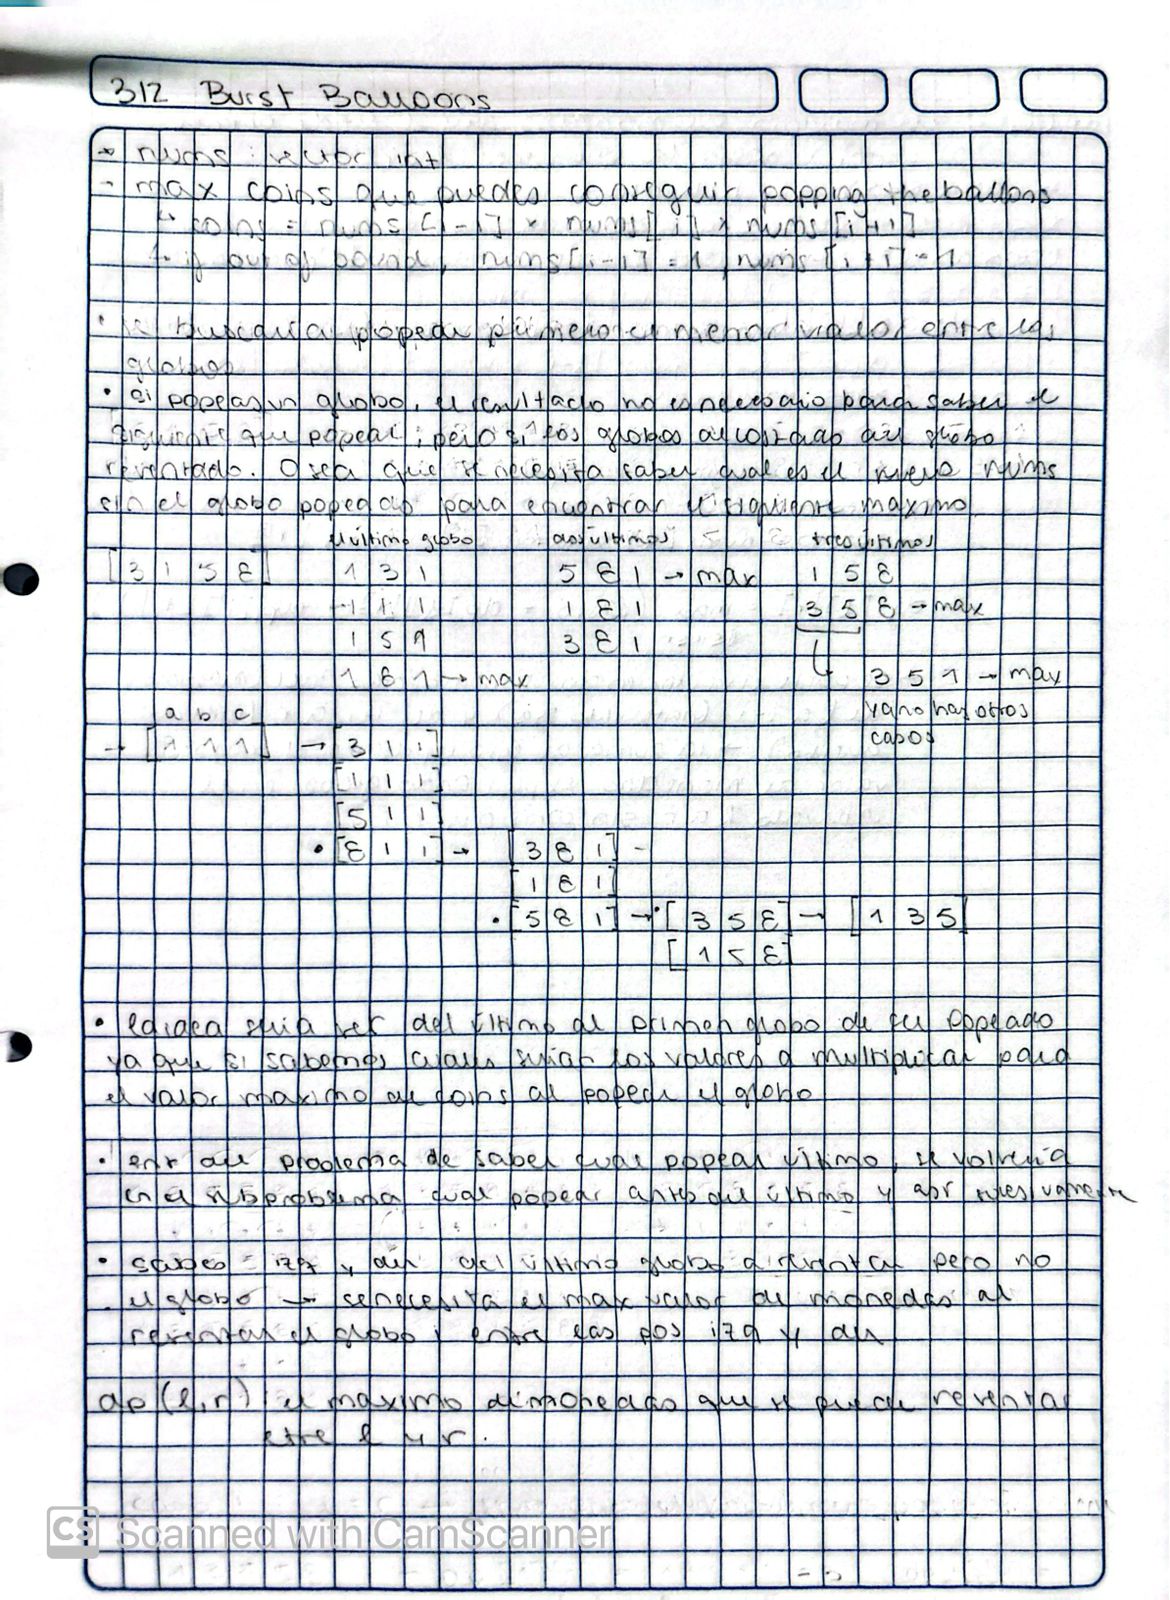 312 Burst Balloons
- nums : vector int
- max coins que puedes conseguir popping the ballons
↳ coins = nums [i-1] × nums[i] × nums [i+1]
↳ if out of bound, nums[i-1] = 1, nums [i+1] = 1
• se buscaria popear primero el menor valor entre los
globos
• si popeas un globo, el resultado no es necesario para saber el
siguiente que popear, pero si los globos al costado del globo
reventado. O sea que se necesita saber cual es el nuevo nums
sin el globo popeado para encontrar el siguiente maximo
el último globo dos últimos tres últimos
[3 1 5 8] 1 3 1 5 8 1 → max 1 5 8
1 1 1 1 8 1 3 5 8 → max
1 5 1 3 8 1
1 8 1 → max 3 5 1 → max
a b c ya no hay otros
→ [1 1 1] → [3 1 1] casos
[1 1 1]
[5 1 1]
• [8 1 1] → [3 8 1] -
[1 8 1]
• [5 8 1] → • [3 5 8] → [1 3 5]
[1 5 8]
• la idea seria ver del último al primer globo de ser popeado
ya que si sabemos cuales serian los valores a multiplicar para
el valor maximo de coins al popear el globo
• del problema de saber cual popear ultimo, se volveria
en el subproblema cual popear antes del último y asi
• sabes izq y der del último globo a reventar pero no
el globo → se necesita el max valor de monedas al
reventar el globo i entre las pos izq y der
dp (l,r) el maximo de monedas que se puede reventar
etre l y r.
CS Scanned with CamScanner